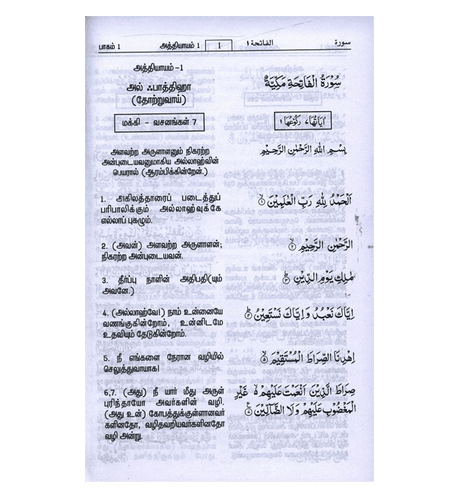 பாகம் 1
அத்தியாயம் 1
1
الفاتحة ١
سورة
அத்தியாயம் -1
அல் ஃபாத்திஹா
(தோற்றுவாய்)
மக்கீ - வசனங்கள் 7
அளவற்ற அருளாளனும் நிகரற்ற
அன்புடையவனுமாகிய அல்லாஹ்வின்
பெயரால் (ஆரம்பிக்கின்றேன்.)
1. அகிலத்தாரைப் படைத்துப்
பரிபாலிக்கும் அல்லாஹ்வுக்கே
எல்லாப் புகழும்.
2. (அவன்) அளவற்ற அருளாளன்;
நிகரற்ற அன்புடையவன்.
3. தீர்ப்பு நாளின் அதிபதி(யும்
அவனே.)
4. (அல்லாஹ்வே!) நாம் உன்னையே
வணங்குகின்றோம், உன்னிடமே
உதவியும் தேடுகின்றோம்.
5. நீ எங்களை நேரான வழியில்
செலுத்துவாயாக!
6,7. (அது) நீ யார் மீது அருள்
புரிந்தாயோ அவர்களின் வழி.
(அது உன்) கோபத்துக்குள்ளானவர்
களினதோ, வழிதவறியவர்களினதோ
வழி அன்று.
سُوْرَةُ الْفَاتِحَةِ مَكِّيَّةٌ
اٰيَاتُهَا ٧ رُكُوْعُهَا ١
بِسْمِ اللّٰهِ الرَّحْمٰنِ الرَّحِيْمِ
اَلْحَمْدُ لِلّٰهِ رَبِّ الْعٰلَمِيْنَ ۙ
الرَّحْمٰنِ الرَّحِيْمِ ۙ
مٰلِكِ يَوْمِ الدِّيْنِ ۗ
اِيَّاكَ نَعْبُدُ وَ اِيَّاكَ نَسْتَعِيْنُ ۗ
اِهْدِنَا الصِّرَاطَ الْمُسْتَقِيْمَ ۙ
صِرَاطَ الَّذِيْنَ اَنْعَمْتَ عَلَيْهِمْ ۙ غَيْرِ
الْمَغْضُوْبِ عَلَيْهِمْ وَلَا الضَّآلِّيْنَ